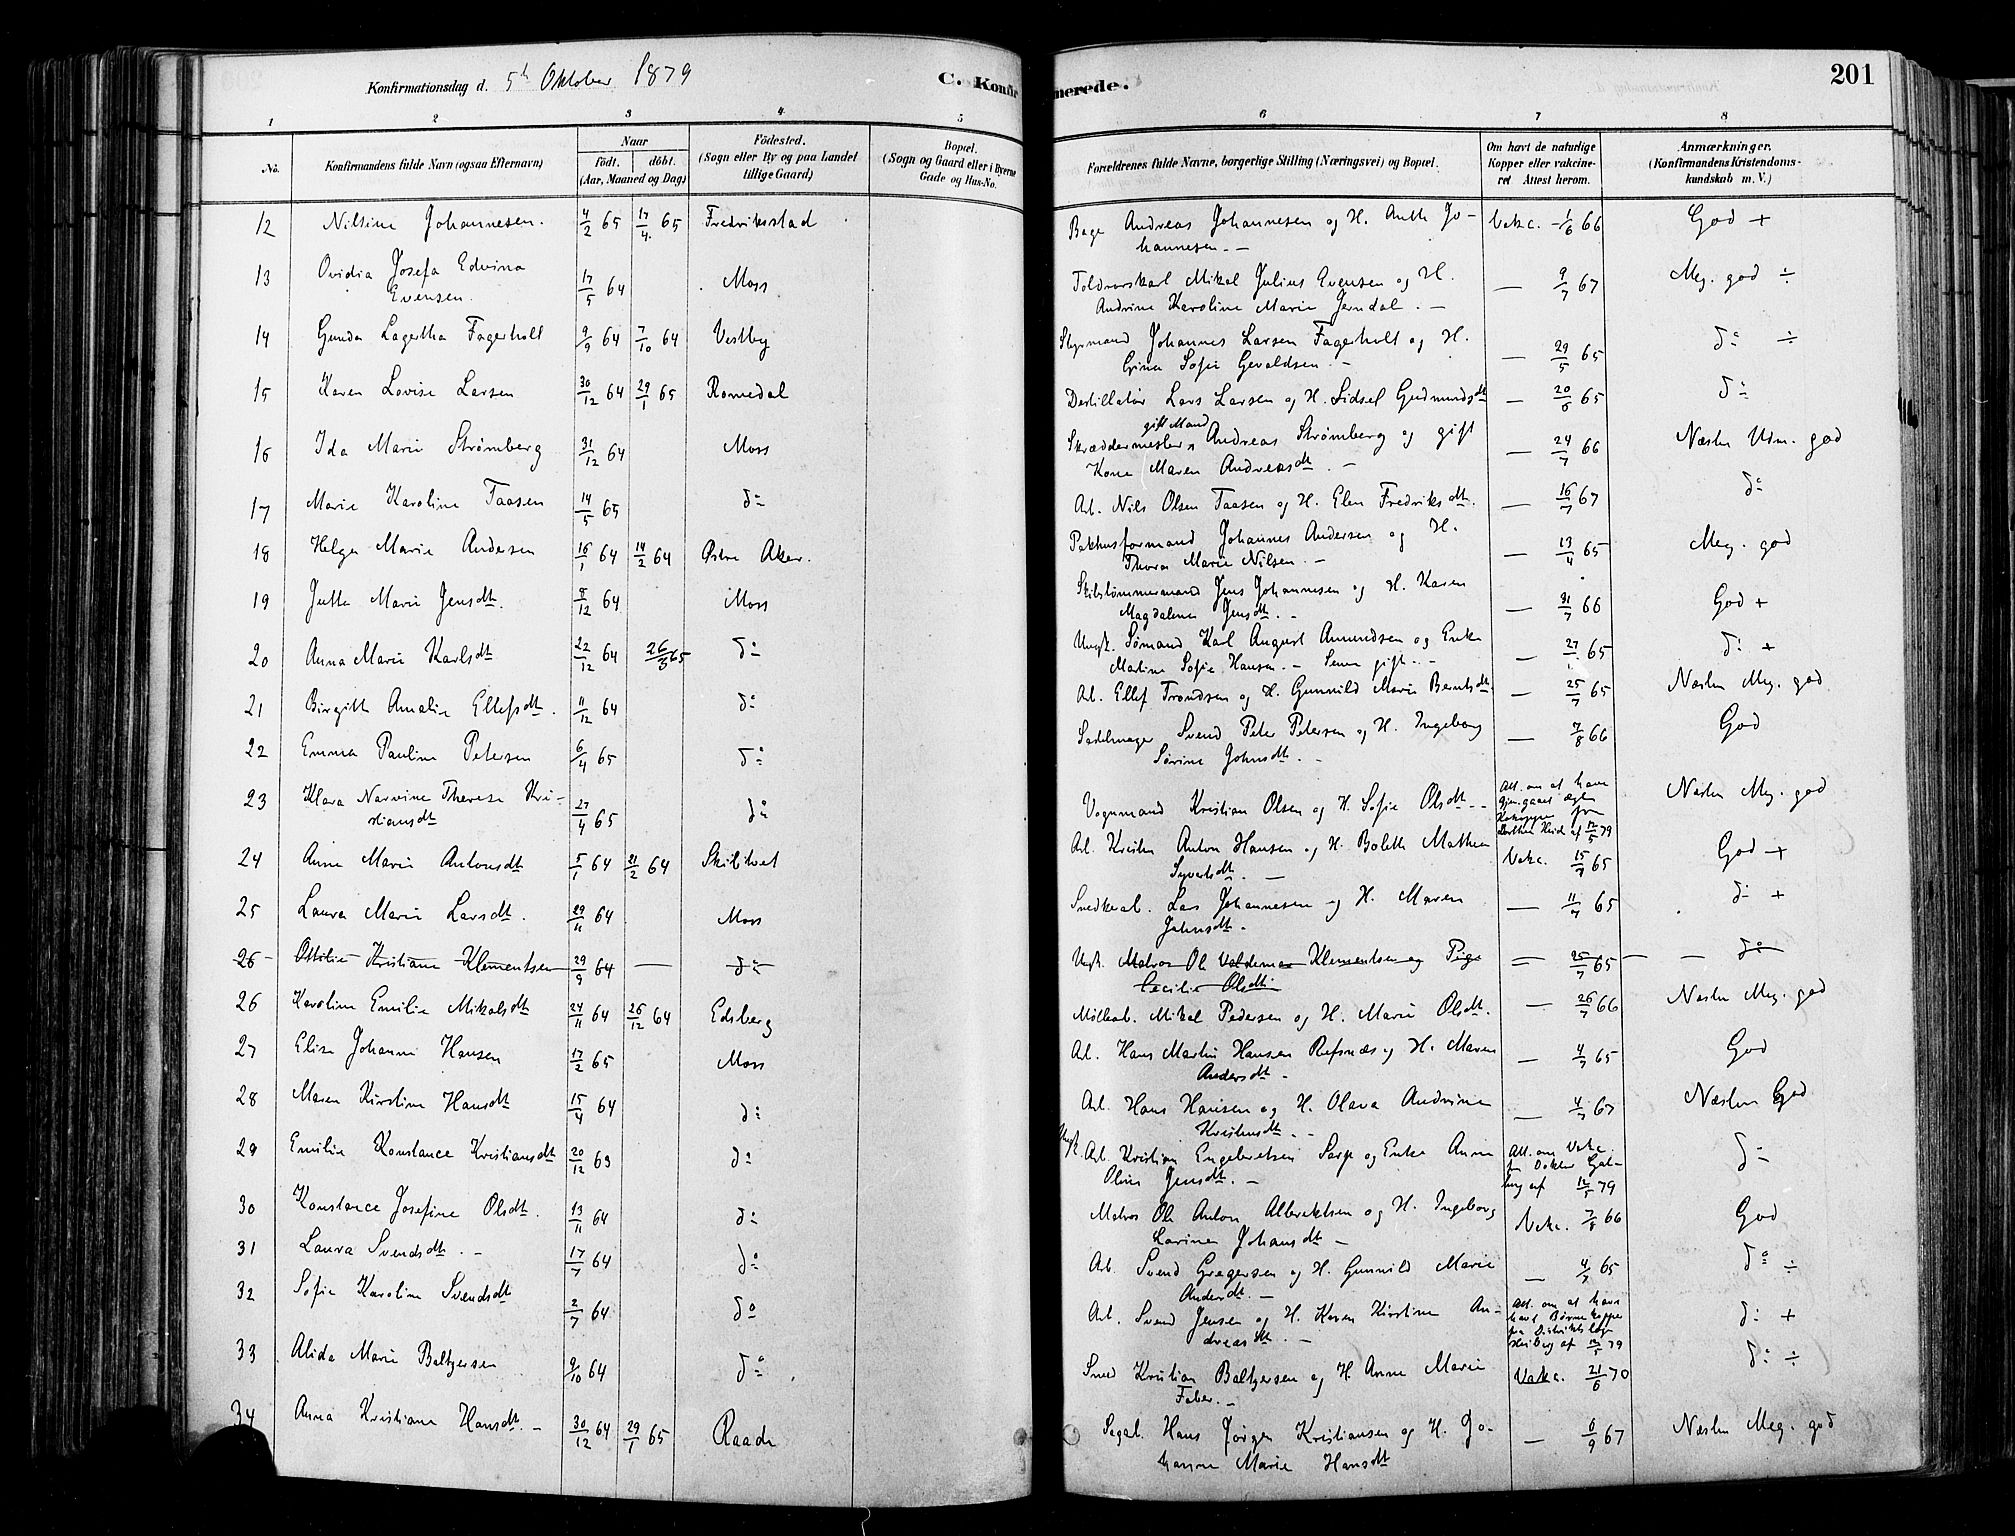 Konfirmationsdag d. 5te Oktober 1879
C. Konfirmerede.
201
1 2 3 4 5 6 7 8
No.
Konfirmandens fulde Navn (ogsaa Efternavn)
Naar
födt. döbt.
(Aar, Maaned og Dag)
Födested.
(Sogn eller By og paa Landet
tillige Gaard)
Bopæl.
(Sogn og Gaard eller i Byerne
Gade og Hus-No.
Forældrenes fulde Navne, borgerlige Stilling (Næringsvei) og Bopæl.
Om havt de naturlige
Kopper eller vakcine-
ret Attest herom.
Anmærkninger.
(Konfirmandens Kristendoms-
kundskab m. V.)
12 Nilsine Johannesen. 4/2 65 17/4 65 Fredriksstad Bage Andreas Johannesen og H. Anth Jo- Vakc. - 1/6 66 God +
hannesen. -
13 Ovidia Josefa Edvina 17/5 64 Moss Toldvorskarl Mikal Julius Evensen og H. — 9/7 67 Meg. god ÷
Evensen. Andrine Karoline Marie Jerndal. -
14 Gunda Lagertha Fagerholt 9/9 64 7/10 64 Vestby Styrmand Johannes Larsen Fagerholt og H. — 29/5 65 do ÷
Grina Sofie Gevaldsen. -
15 Karen Lovise Larsen 30/12 64 29/1 65 Romedal Destillatør Lars Larsen og H. Sidsel Gudmundsdt — 20/6 65 do
16 Ida Marie Strømberg 31/12 64 Moss Skræddermester gift Mand Andreas Strømberg og gift — 24/7 66 Næsten Udm. god
Kone Maren Andreasdt. -
17 Marie Karoline Taasen 14/5 65 do Arb. Nils Olsen Taasen og H. Elen Fredriksdt. — 16/7 67 do
18 Helga Marie Andersen 16/1 64 14/2 64 Østre Aker. Pakhusformand Johannes Andersen og H. — 13/4 65 Meg. god
Thora Marie Nilsen. -
19 Jutta Marie Jensdt. 8/12 64 Moss Skibstømmermand Jens Johannesen og H. Karen — 31/7 66 God +
Magdalena Jensdt. -
20 Anna Marie Karlsdt 22/12 64 26/3 65 do Ungk. Sømand Karl August Amundsen og Enke — 27/1 65 do +
Martine Sofie Hansen. - Senere gift. -
21 Birgitte Amalie Ellefsdt. 11/12 64 do Arb. Ellef Trondsen og H. Gunnild Marie Berntsdt. — 25/7 65 Næsten Meg. god
22 Emma Pauline Petersen 6/4 65 do Sadelmager Svend Peter Petersen og H. Ingeborg — 7/8 66 God
Sørine Johnsdt. -
23 Klara Narvine Therese Kri- 27/4 65 do Vognmand Kristian Olsen og H. Sofie Olsdt. - Att. om at have gjengaaet ægte Kokopper fra af 12/5 79 Næsten Meg. god
stiansdt
24 Anne Marie Antonsdt 5/1 64 21/2 64 Skibtvet Arb. Kristen Anton Hansen og H. Bolette Mathea Vakc. 15/7 65 God +
Syvertsdt. -
25 Laura Marie Larsdt. 29/11 64 Moss Snedkeab. Lars Johannesen og H. Maren — 11/7 65 do +
Johnsdt.
26 Ottilie Kristiane Klementsen 29/9 64 — do Ungk. Matros Ole Valdemar Klementsen og Pige — 25/7 65 — do
Cecilie Olsdt.
26 Karoline Emilie Mikalsdt 24/11 64 26/12 64 Edsberg Mølleab. Mikal Pedersen og H. Marie Olsdt. — 26/7 66 Næsten Meg. god
27 Elise Johanne Hansen 17/2 65 Moss Arb. Hans Martin Hansen Refsnæs og H. Maren — 4/7 65 God
Andersdt -
28 Maren Kirstine Hansdt 15/4 64 do Arb. Hans Hansen og H. Olava Andrine — 4/7 67 Næsten God
Kristensdt. -
29 Emilie Konstance Kristiansdt 20/12 63 do Ungk. Arb. Kristian Engebretsen Sarp og Enke Anne Att. om Vakc. fra Doktor af 12/5 79 do
Oline Jensdt. -
30 Konstance Josefine Olsdt. 13/11 64 do Matros Ole Anton Albrektsen og H. Ingeborg Vakc. 7/8 66 God
Karine Johansdt -
31 Laura Svendsdt. - 17/7 64 do Arb. Svend Gregersen og H. Gunnild Marie — 4/7 65 do ÷
Andersdt. -
32 Sofie Karoline Svendsdt 2/7 64 do Arb. Svend Jensen og H. Karen Kirstine An- Att. om at have havt Børnekopper fra Distriktslæge af 12/5 79 do +
dreasdt. -
33 Alida Marie Baltzersen 9/10 64 do Smed Kristian Baltzersen og H. Anne Marie Vakc. 21/6 70 do ÷
Faber. -
34 Anna Kristiane Hansdt. - 30/12 64 29/1 65 Raade Sagab. Hans Jørgen Kristiansen og H. Jo- — 6/9 67 Næsten Meg. god
hanne Marie Hansdt